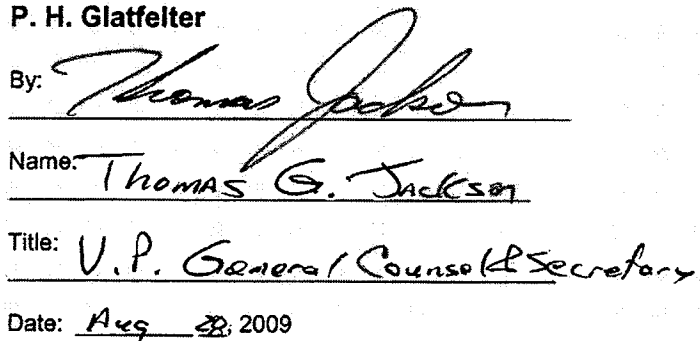 P. H. Glatfelter
By: Thomas Jackson
Name: Thomas G. Jackson
Title: V.P. General Counsel & Secretary
Date: Aug 28, 2009